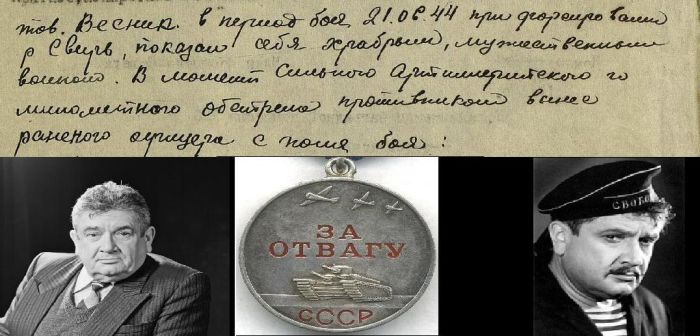 тов. Весник. в период боя 21.06.44 при форсировании
р Свирь, показал себя храбрым, мужественным
воином. В момент сильного Артиллерийского и
минометного обстрела противником вынес
раненого офицера с поля боя.
ЗА
ОТВАГУ
СССР
СВОБО